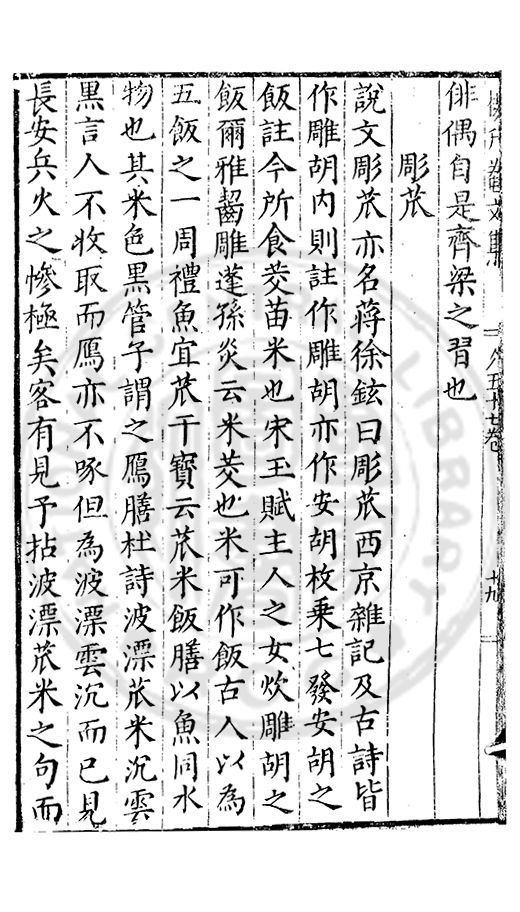 俳偶自是齊梁之習也
彫苽
說文彫苽亦名蔣徐鉉曰彫苽西京雜記及古詩皆
作雕胡内則註作雕胡亦作安胡枚乗七發安胡之
飯註今所食茭苗米也宋玉賦主人之女炊雕胡之
飯爾雅齧雕蓬孫炎云米茭也米可作飯古人以為
五飯之一周禮魚宜苽干寳云苽米飯膳以魚同水
物也其米色黒管子謂之鴈膳杜詩波漂苽米沉雲
黒言人不收取而鴈亦不啄但為波漂雲沉而已見
長安兵火之慘極矣客有見予拈波漂苽米之句而